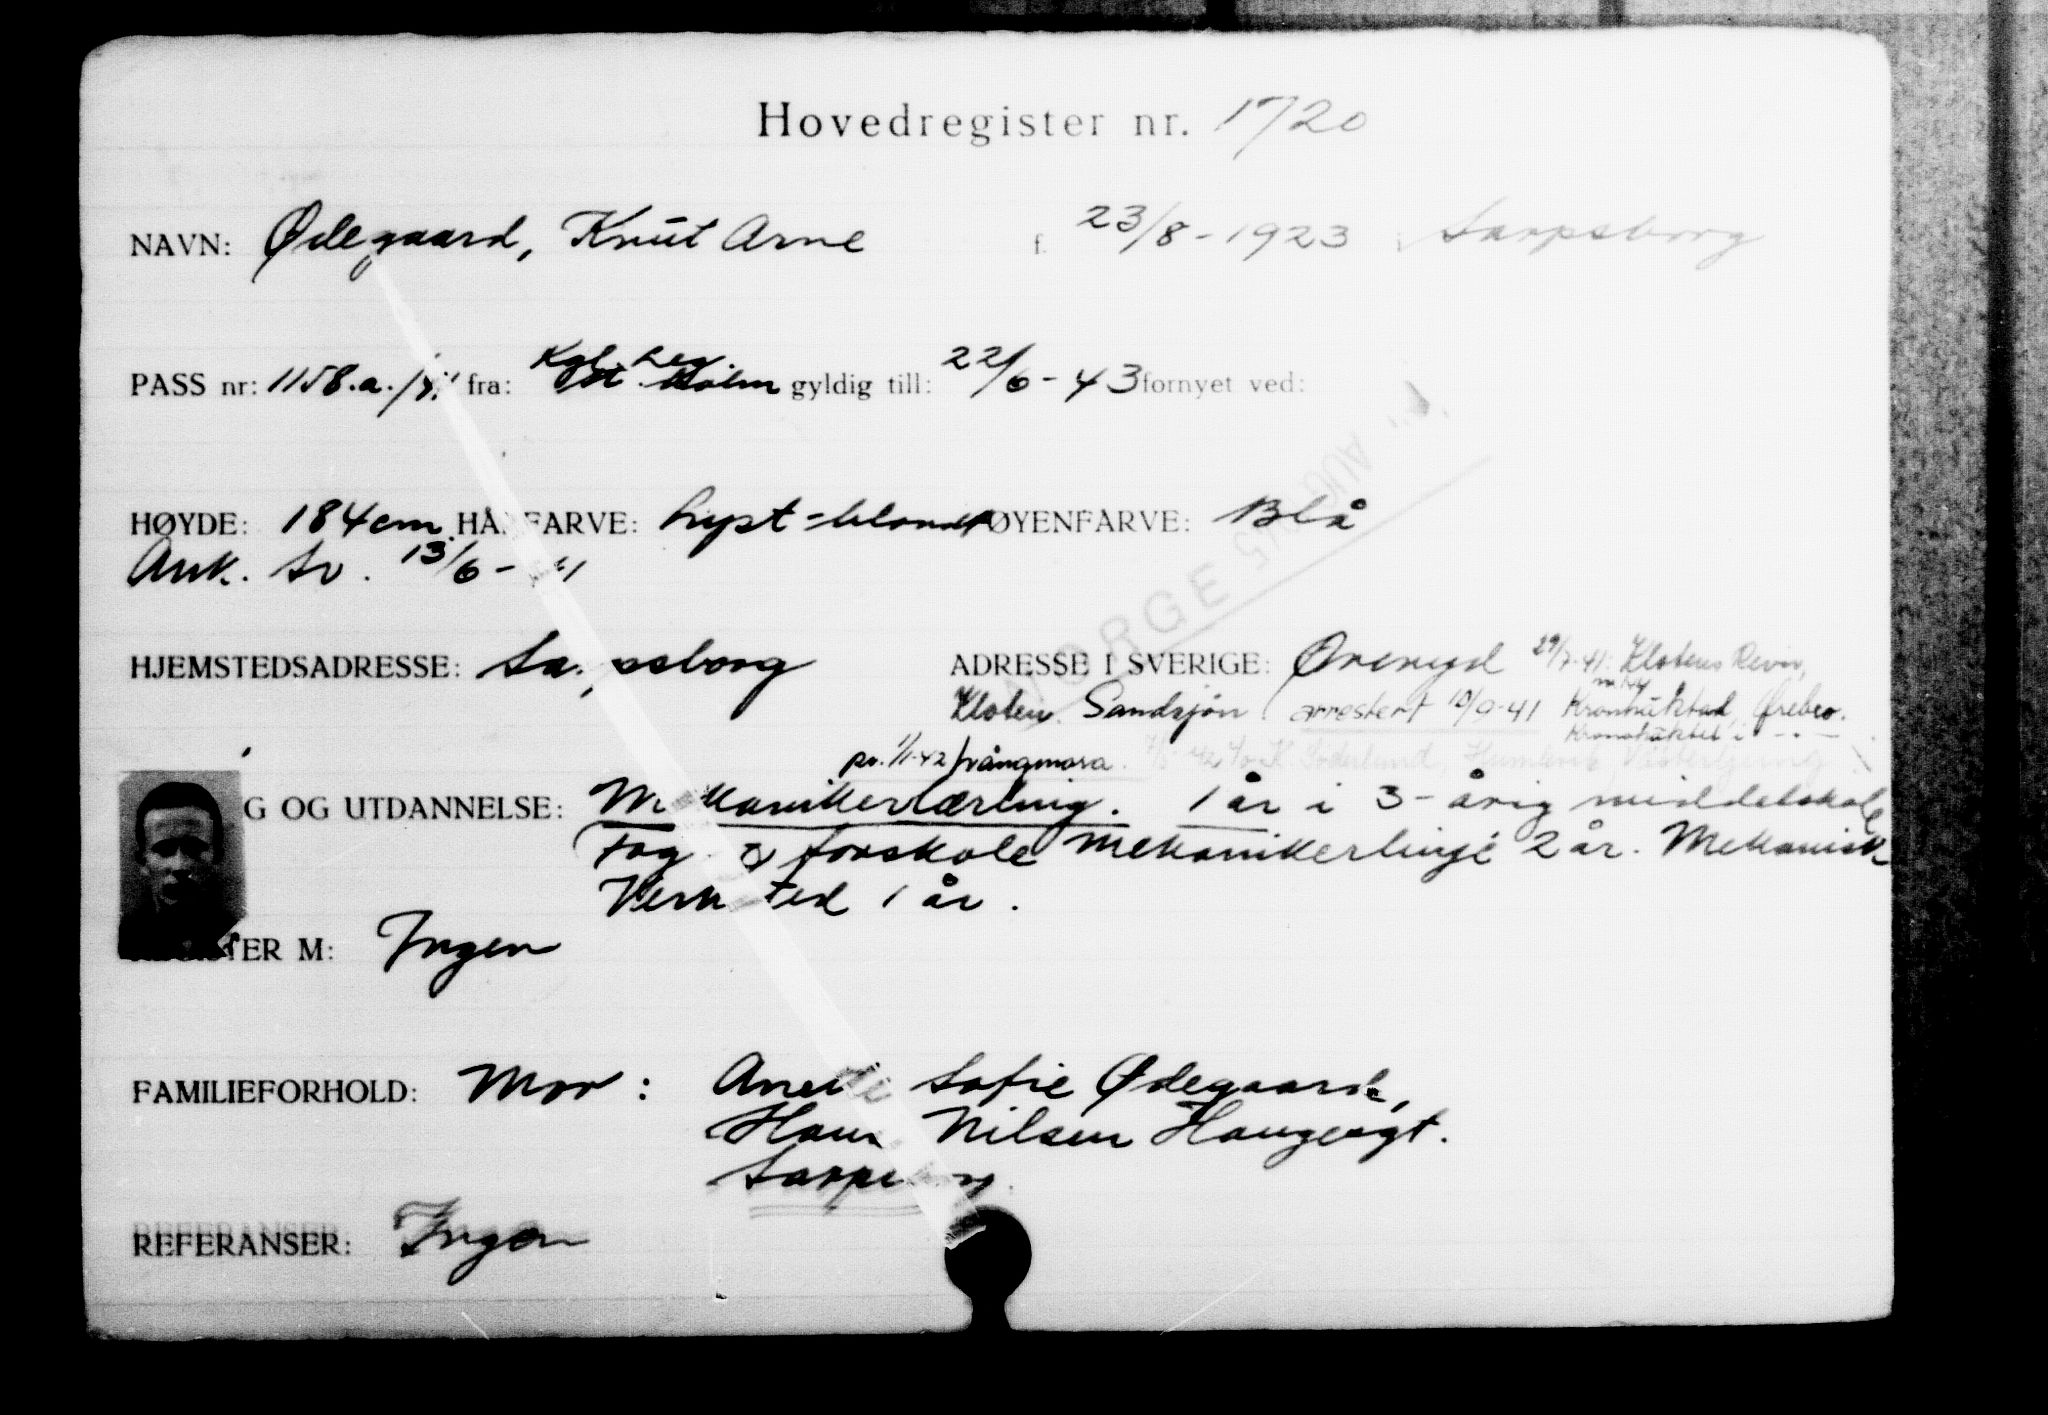 Hovedregister nr. 1720
NAVN: Ødegaard, Knut Arne f. 23/8-1923 i Sarpsborg
PASS nr: 1158.a./41 fra: Kgl. Leg. St.holm gyldig till: 22/6-43 fornyet ved:
HØYDE: 184 cm. HÅRFARVE: Lyst-blondt ØYENFARVE: Blå
Ank. Sv. 13/6-41
NORGE AUG 1945
HJEMSTEDSADRESSE: Sarpsborg ADRESSE I SVERIGE: Öreryd 29/7-41: Klotens Revir,
Kloten. Sandsjön. arrestert 10/9-41 Kronhäktad, Örebro.
pr. 1/1-42 Krångmora. K. Söderlund, Humlevik,
G OG UTDANNELSE: Mekanikerlærling. 1 år i 3-årig middelskole
Fag og forskole Mekanikerlinje 2 år. Mekanisk
Verksted 1 år.
TER M: Ingen
FAMILIEFORHOLD: Mor: Anette Sofie Ødegaard,
Hans Nilsen Haugesgt.
Sarpsborg.
REFERANSER: Ingen